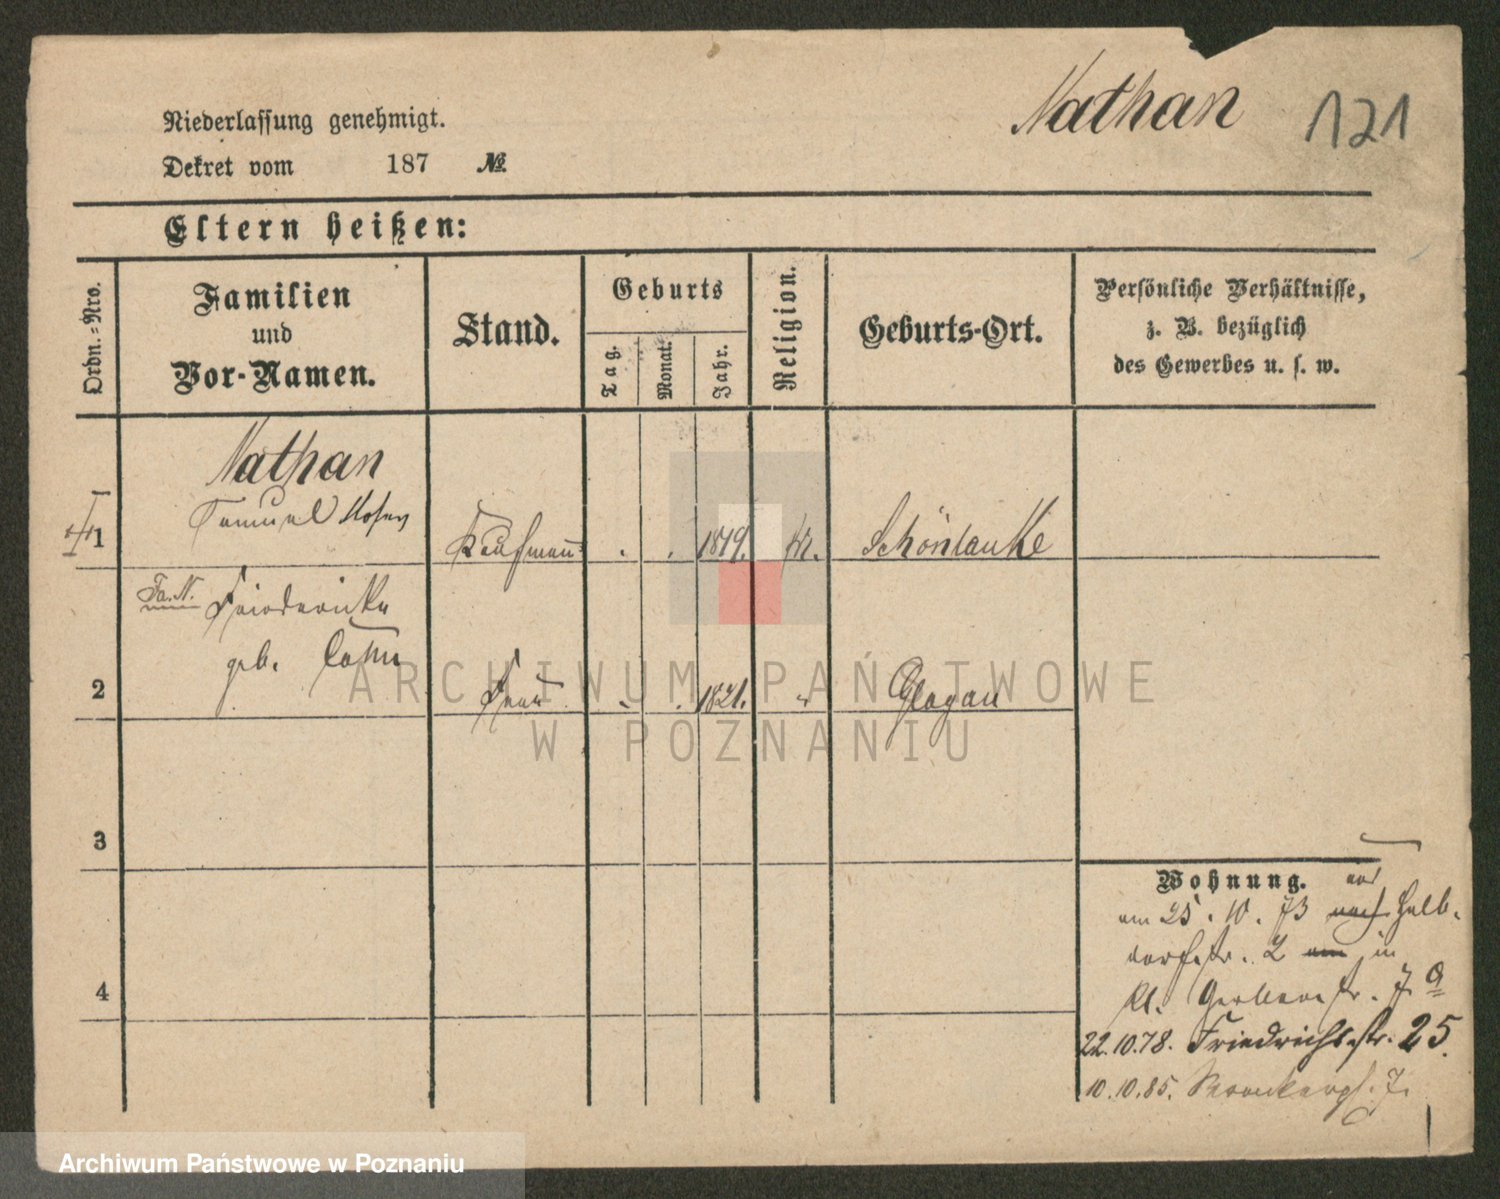 Nathan 121
Niederlassung genehmigt.
Dekret vom 187 №
Eltern heißen:
Ordn.-Nro.
Familien
und
Vor-Namen.
Stand.
Geburts
Tag.
Monat.
Jahr.
Religion.
Geburts-Ort.
Persönliche Verhältnisse,
z. B. bezüglich
des Gewerbes u. s. w.
Nathan
Samuel Moses
1 Kaufmann 1819. Schönlanke
Fa. N. Friedericke
geb. Cohn
2 Frau 1821. Glogau
3
4
Wohnung.
am 25. 10. 73 nach Halb-
dorfstr. 2 in
kl. Gerberstr. 7 a
22.10.78. Friedrichs.str. 25.
10.10.85.
ARCHIWUM PAŃSTWOWE
W POZNANIU
Archiwum Państwowe w Poznaniu